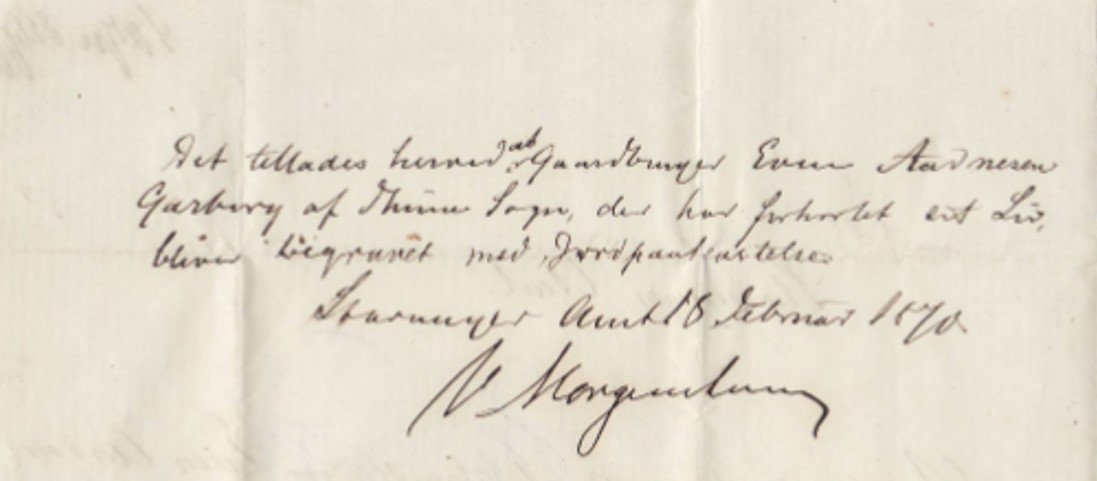 Det tillades herved at Gaardbruger Even Aadnesen
Garborg af Thime Sogn, der har forkortet sit Liv,
bliver begravet med Jordpaakastelse
Stavanger Amt 18 Februar 1870.
V Morgenstierne